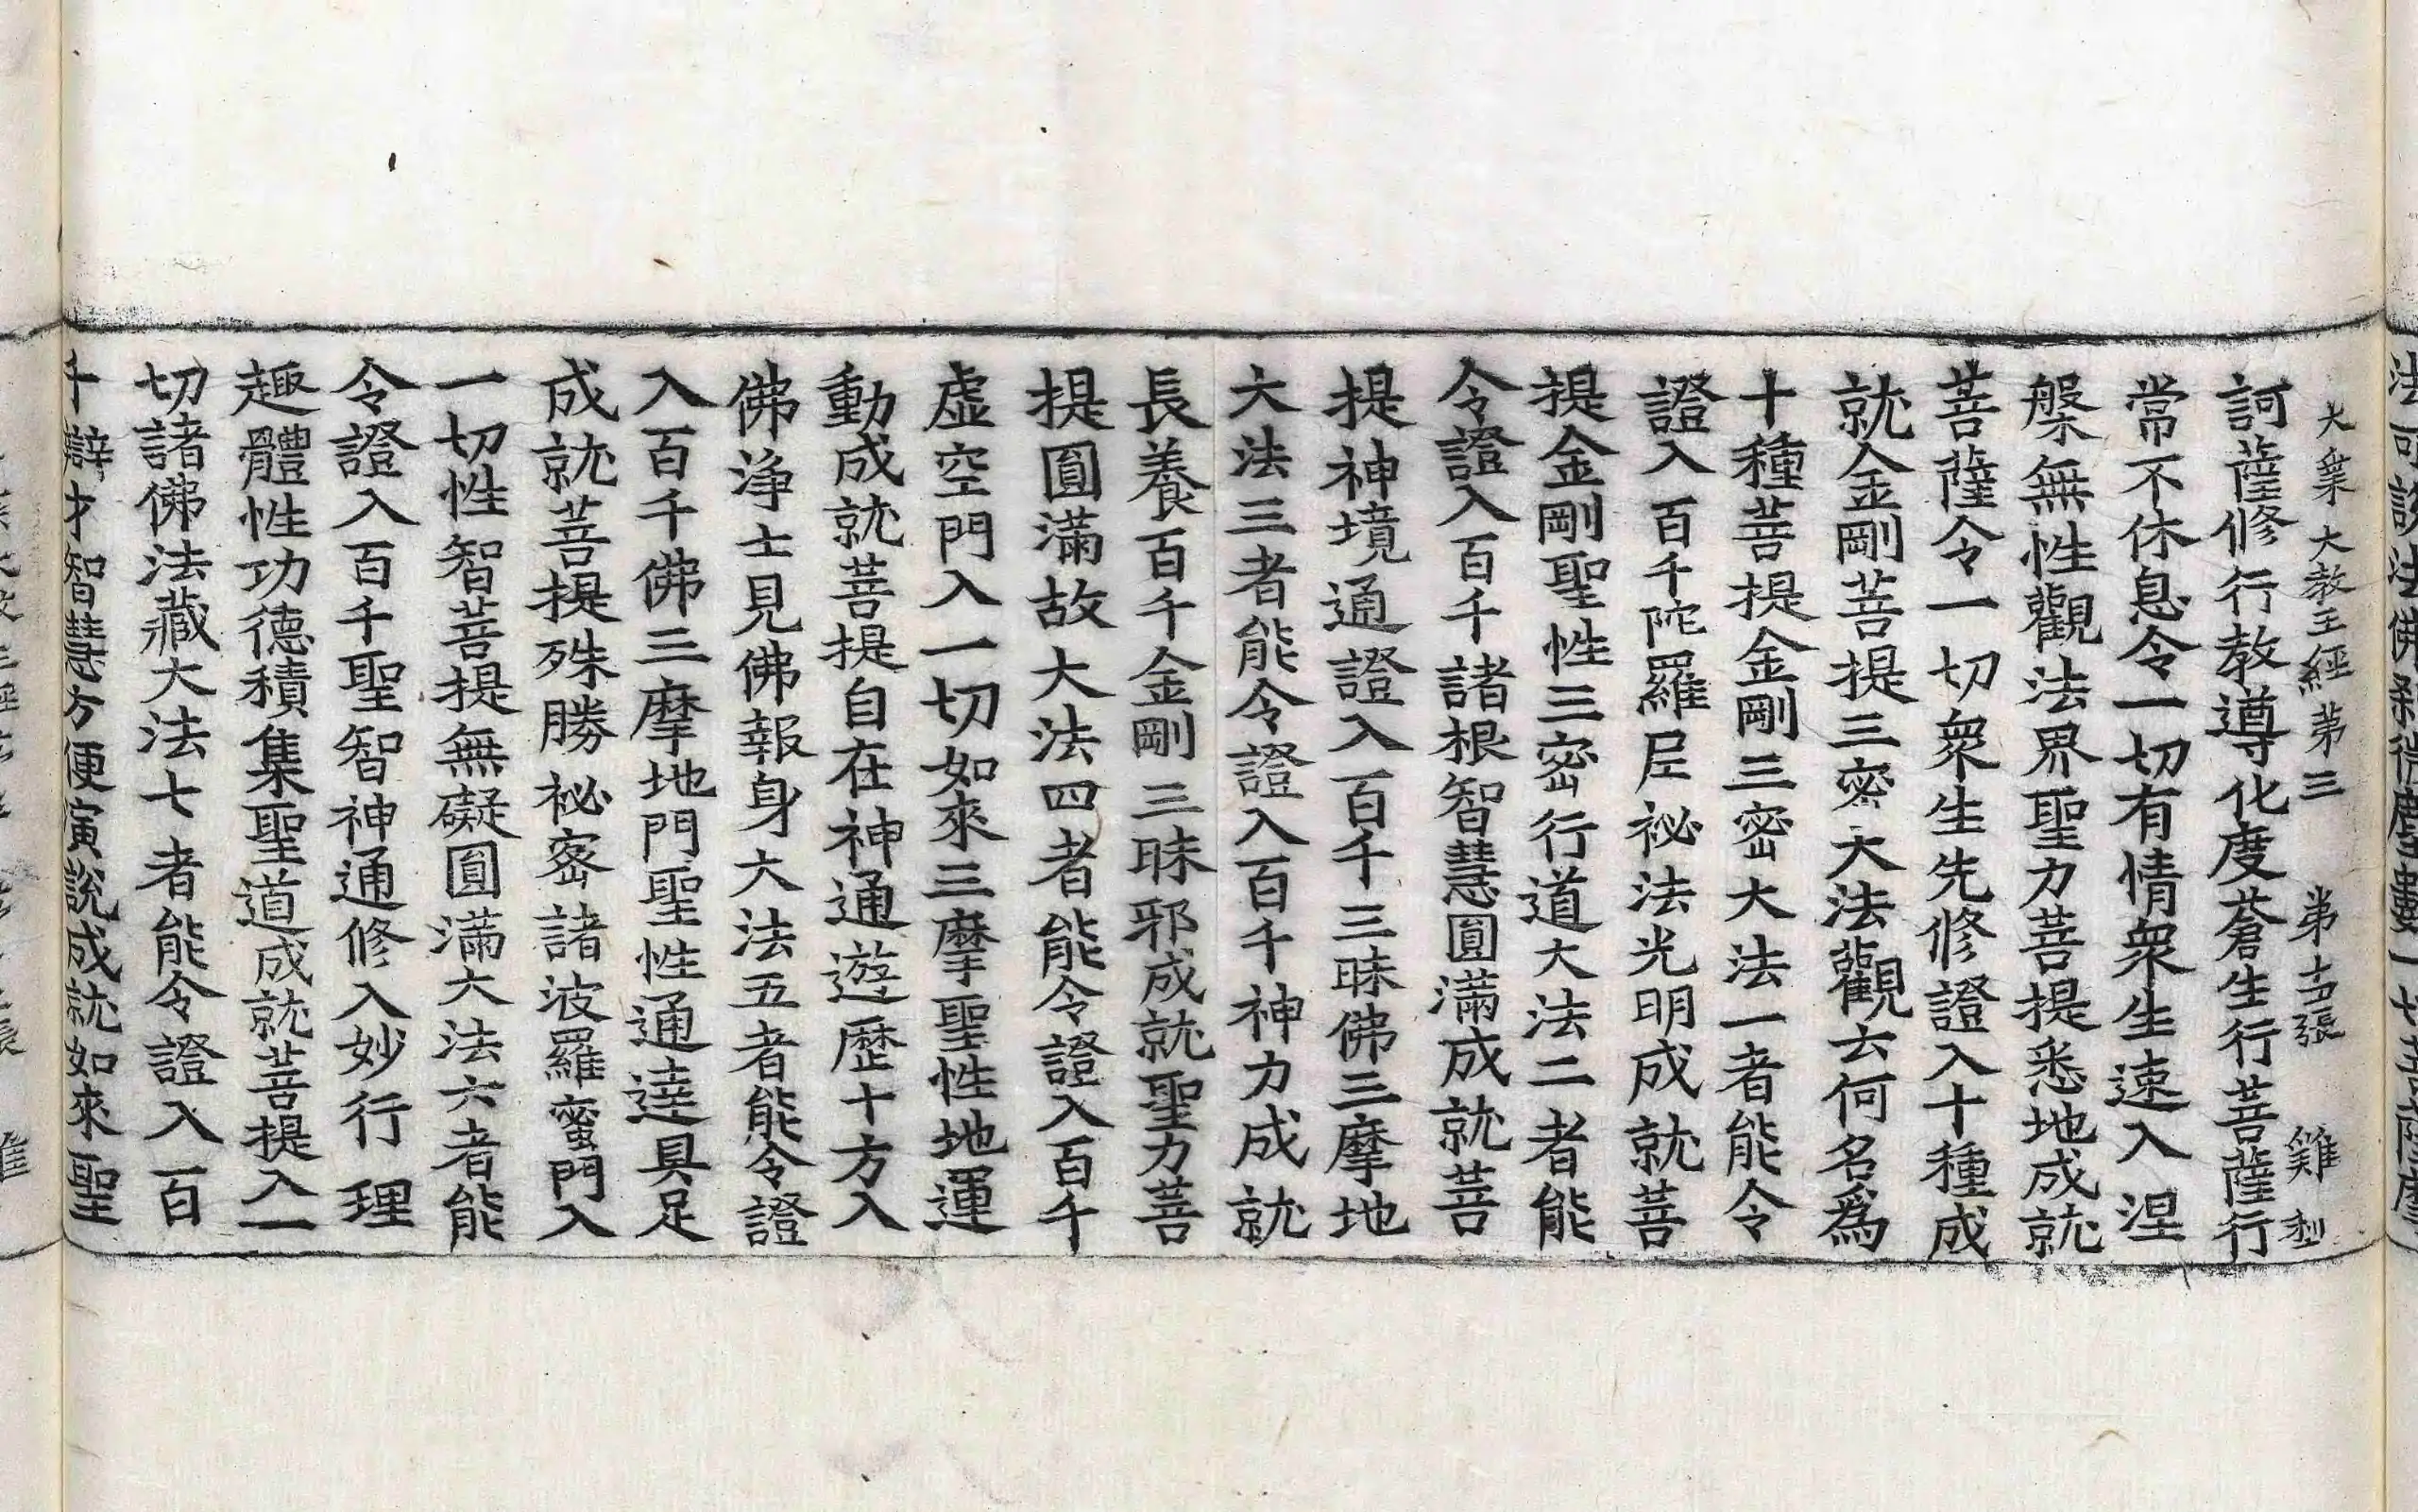 大業大教王經第三 第十五張 難 刹
訶薩修行教導化度蒼生行菩薩行
常不休息令一切有情衆生速入涅
槃無性觀法界聖力菩提悉地成就
菩薩令一切衆生先修證入十種成
就金剛菩提三密大法觀云何名爲
十種菩提金剛三密大法一者能令
證入百千陀羅尼祕法光明成就菩
提金剛聖性三密行道大法二者能
令證入百千諸根智慧圓滿成就菩
提神境通證入百千三昧佛三摩地
大法三者能令證入百千神力成就
長養百千金剛三昧邪成就聖力菩
提圓滿故大法四者能令證入百千
虛空門入一切如來三摩聖性地運
動成就菩提自在神通遊歷十方入
佛淨士見佛報身大法五者能令證
入百千佛三摩地門聖性通達具足
成就菩提殊勝祕密諸波羅蜜門入
一切性智菩提無礙圓滿大法六者能
令證入百千聖智神通修入妙行理
趣體性功德積集聖道成就菩提入一
切諸佛法藏大法七者能令證入百
千辯才智慧方便演說成就如來聖